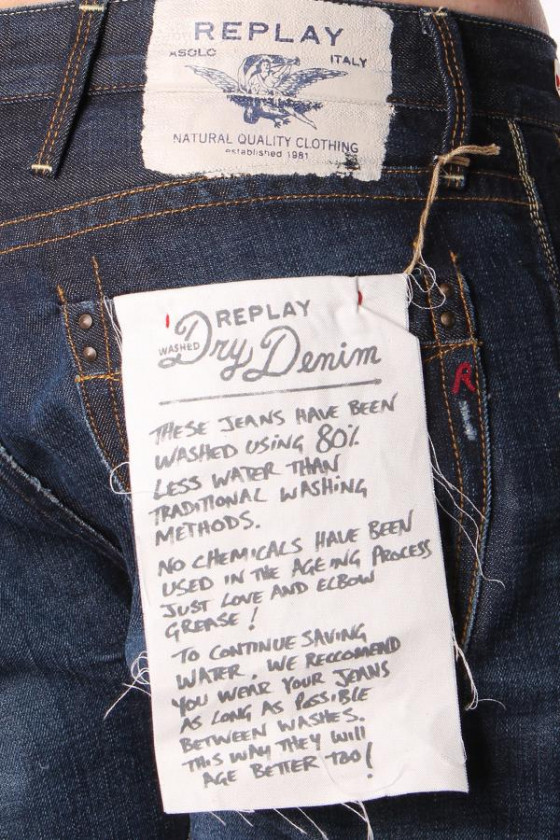 REPLAY
ASOLO ITALY
NATURAL QUALITY CLOTHING
established 1981
REPLAY
WASHED Dry Denim
THESE JEANS HAVE BEEN
WASHED USING 80%
LESS WATER THAN
TRADITIONAL WASHING
METHODS.
NO CHEMICALS HAVE BEEN
USED IN THE AGEING PROCESS
JUST LOVE AND ELBOW
GREASE!
TO CONTINUE SAVING
WATER, WE RECCOMEND
YOU WEAR YOUR JEANS
AS LONG AS POSSIBLE
BETWEEN WASHES.
THIS WAY THEY WILL
AGE BETTER TOO!
R